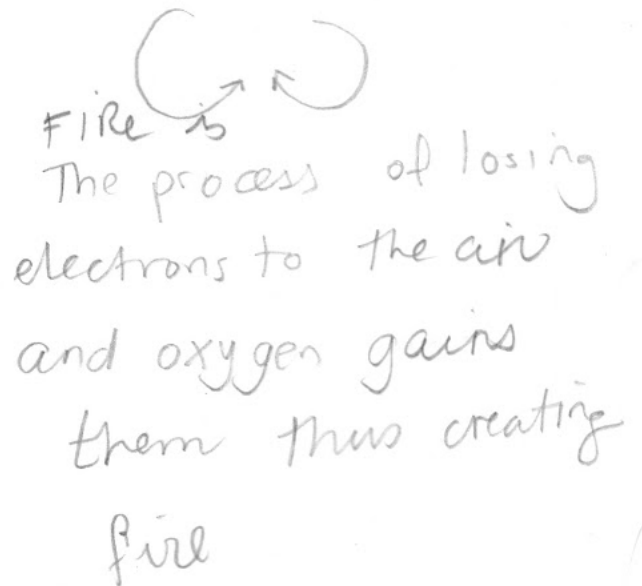 FIRe is
The process of losing
electrons to the air
and oxygen gains
them thus creating
fire